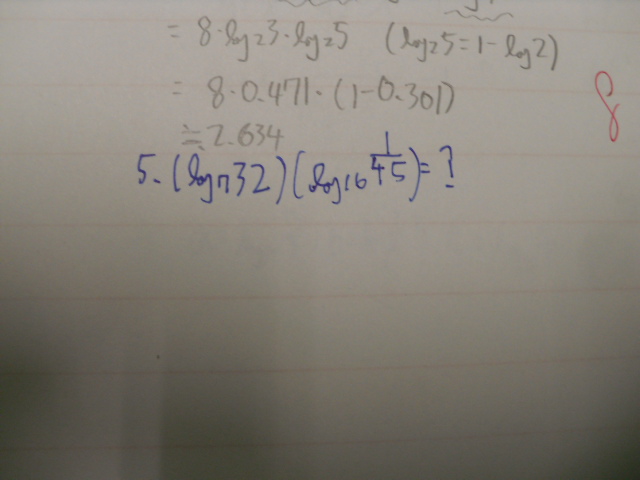 = 8·log₂3·log₂5 (log₂5=1-log2)
= 8·0.471·(1-0.301)
≒ 2.634
8
5. (log₇32)(log₁₆ 1/45)=?